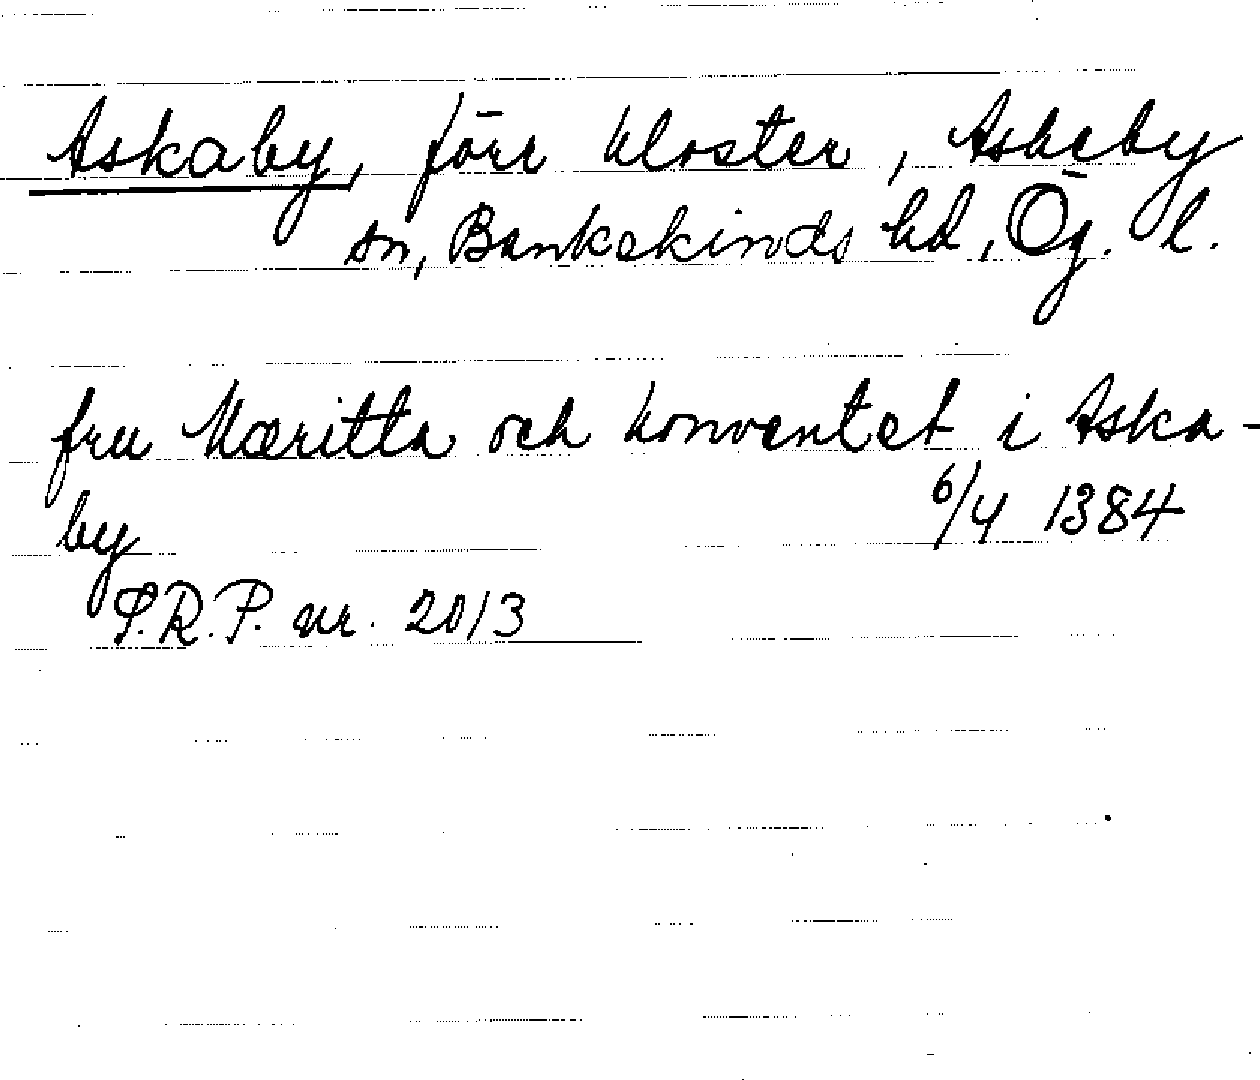 Askaby, förr kloster, Askeby
sn, Bankekinds hd, Ög. l.
fru Mæritta och konventet i Aska-
by 6/4 1384
S.R.P. nr. 2013